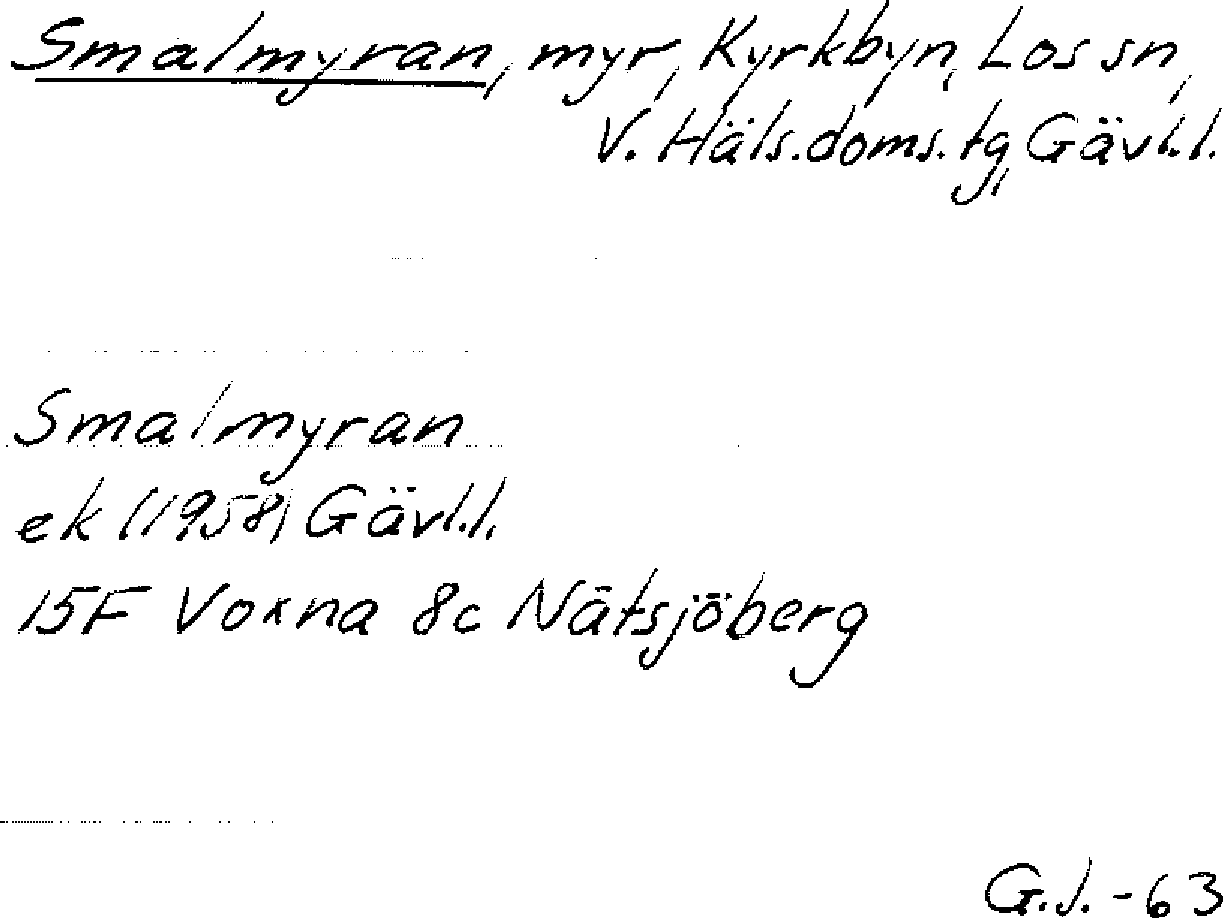 Smalmyran, myr, Kyrkbyn, Los sn,
V. Häls. doms. tg, Gävl. l.
Smalmyran
ek (1958) Gävl. l.
15F Voxna 8c Nätsjöberg
G.J. -63